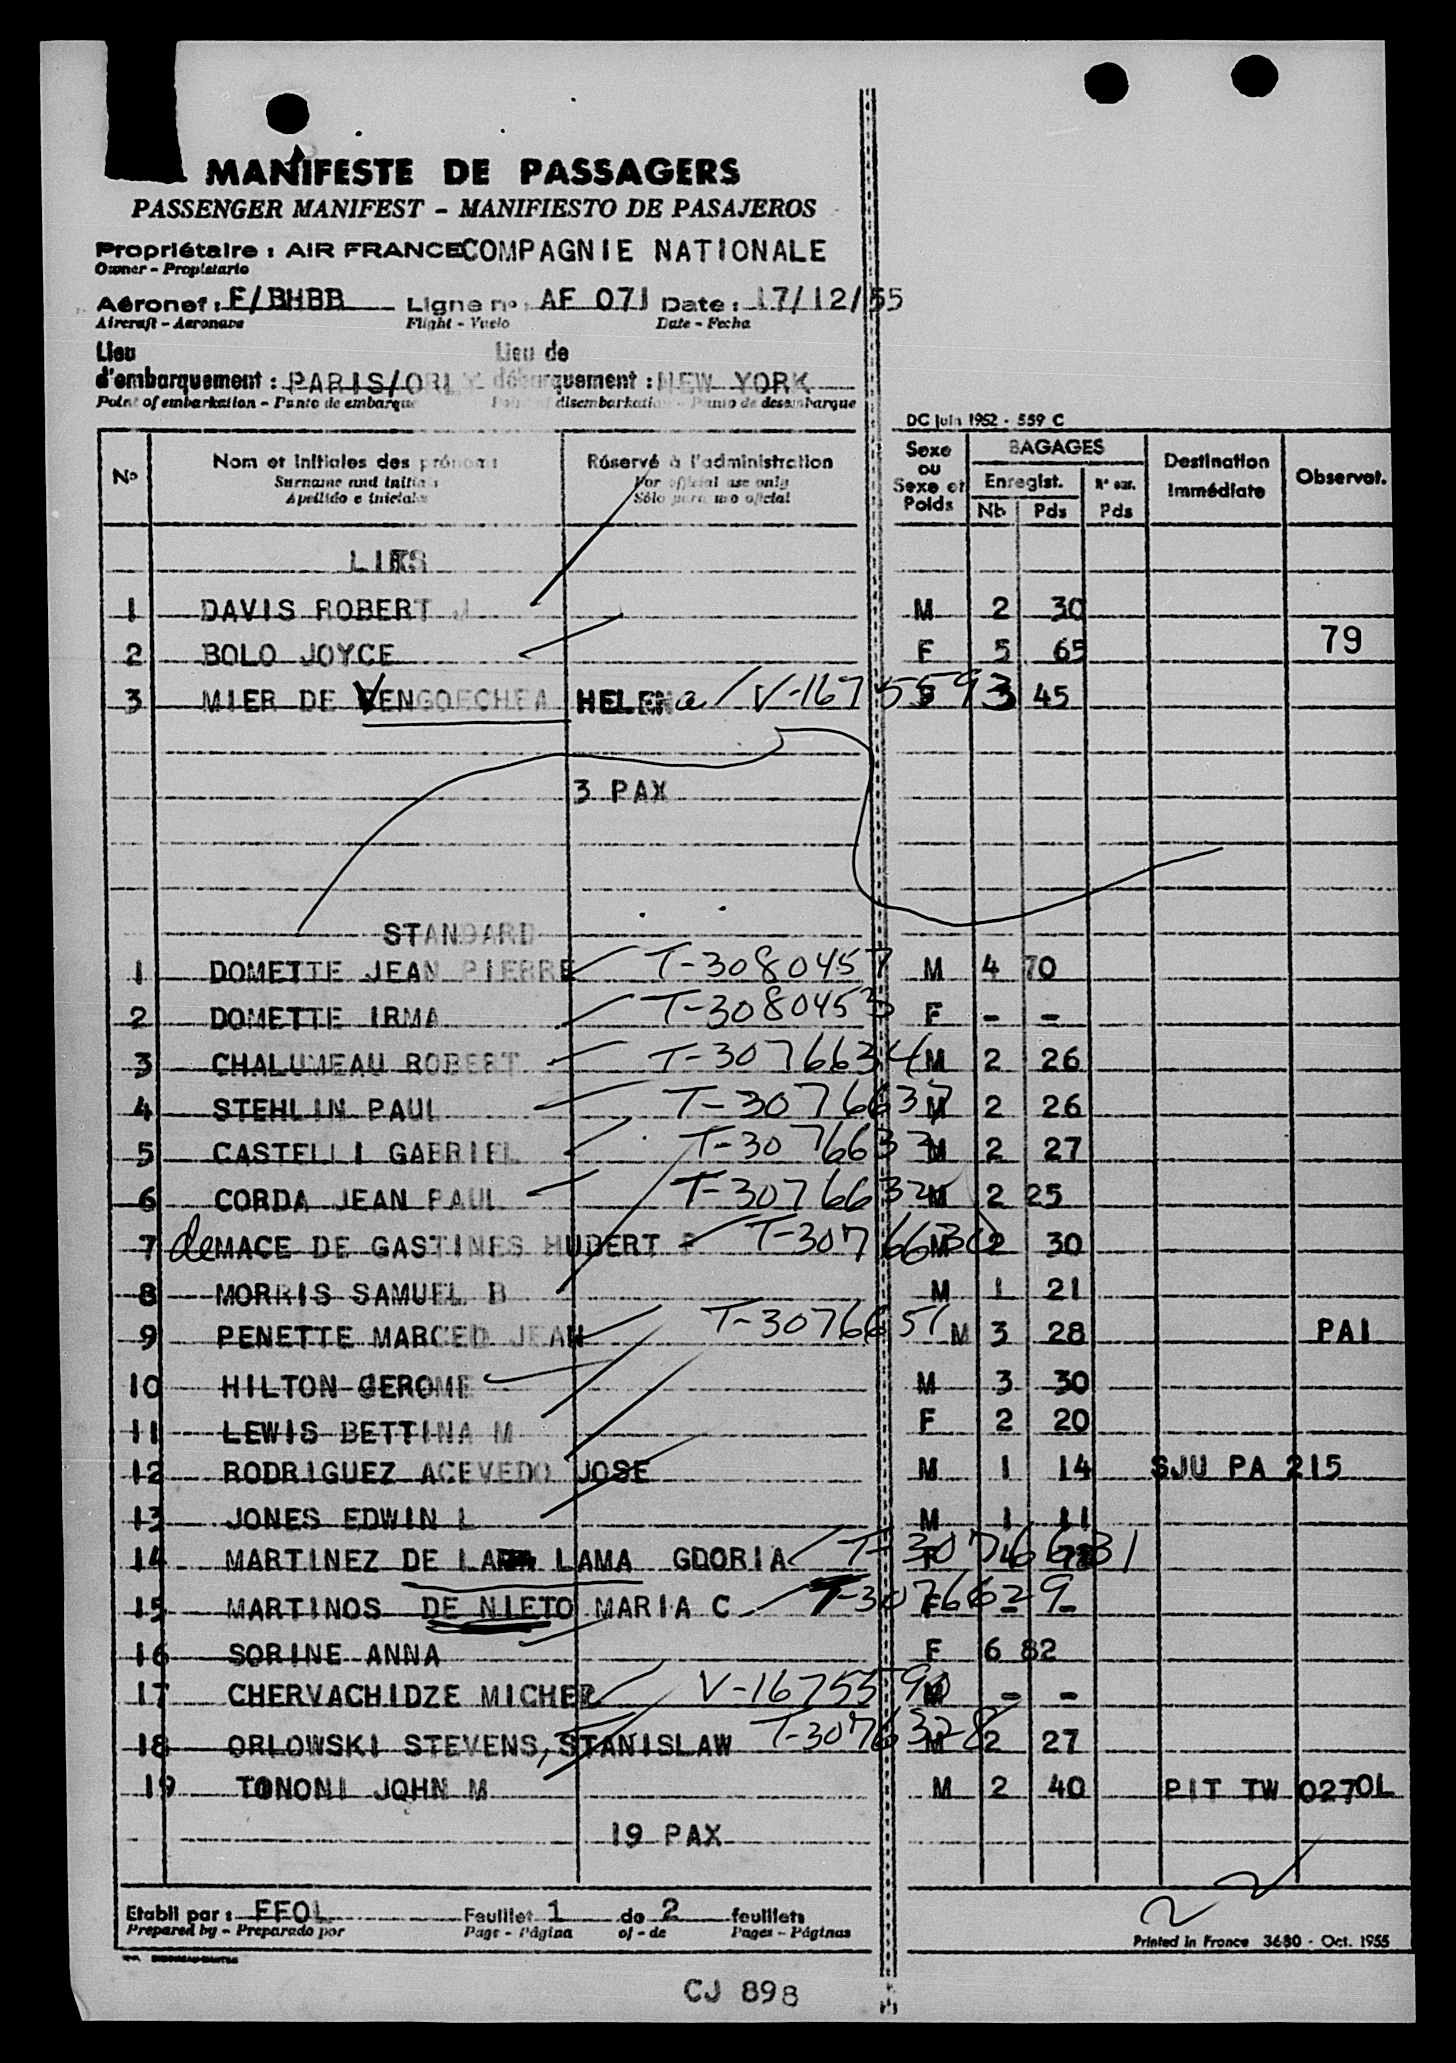 MANIFESTE DE PASSAGERS
PASSENGER MANIFEST - MANIFIESTO DE PASAJEROS
Propriétaire : AIR FRANCE COMPAGNIE NATIONALE
Owner - Propietario
Aéronef : F/BHBB Ligne n° : AF 071 Date : 17/12/55
Aircraft - Aeronave Flight - Vuelo Date - Fecha
Lieu d'embarquement : PARIS/ORLY Lieu de débarquement : NEW YORK
Point of embarkation - Punto de embarque Point of disembarkation - Punto de desembarque
DC Juin 1952 - 559 C
N° Nom et initiales des prénoms Réservé à l'administration Sexe ou Sexe et Poids BAGAGES Destination immédiate Observat.
Surname and initials For official use only Enregist.
Apellido e iniciales Sólo para uso oficial Nb Pds Pds
1 DAVIS ROBERT J M 2 30
2 BOLO JOYCE F 5 65 79
3 MIER DE VENGOECHEA HELENa V-1675593 F 3 45
3 PAX
STANDARD
1 DOMETTE JEAN PIERRE T-3080457 M 4 70
2 DOMETTE IRMA T-3080453 F - -
3 CHALUMEAU ROBERT T-3076634 M 2 26
4 STEHLIN PAUL T-3076637 M 2 26
5 CASTELLI GABRIEL T-307663 M 2 27
6 CORDA JEAN PAUL T-3076632 M 2 25
7 de MACE DE GASTINES HUBERT P T-3076630 M 2 30
8 MORRIS SAMUEL B M 1 21
9 PENETTE MARCED JEAN T-3076651 M 3 28 PAI
10 HILTON GEROME M 3 30
11 LEWIS BETTINA M F 2 20
12 RODRIGUEZ ACEVEDO JOSE M 1 14 SJU PA 215
13 JONES EDWIN L M 1 11
14 MARTINEZ DE LA LAMA GDORIA T-3076631 F 4
15 MARTINOS DE NIETO MARIA C T-3076629 F - -
16 SORINE ANNA F 6 82
17 CHERVACHIDZE MICHEL V-1675590 M - -
18 ORLOWSKI STEVENS, STANISLAW T-3076328 M 2 27
19 TONONI JOHN M M 2 40 PIT TW 027 OL
19 PAX
Etabli par : FFOL Feuillet 1 de 2 feuillets
Prepared by - Preparado por Page - Página of - de Pages - Páginas
Printed in France 3680 - Oct. 1955
CJ 898